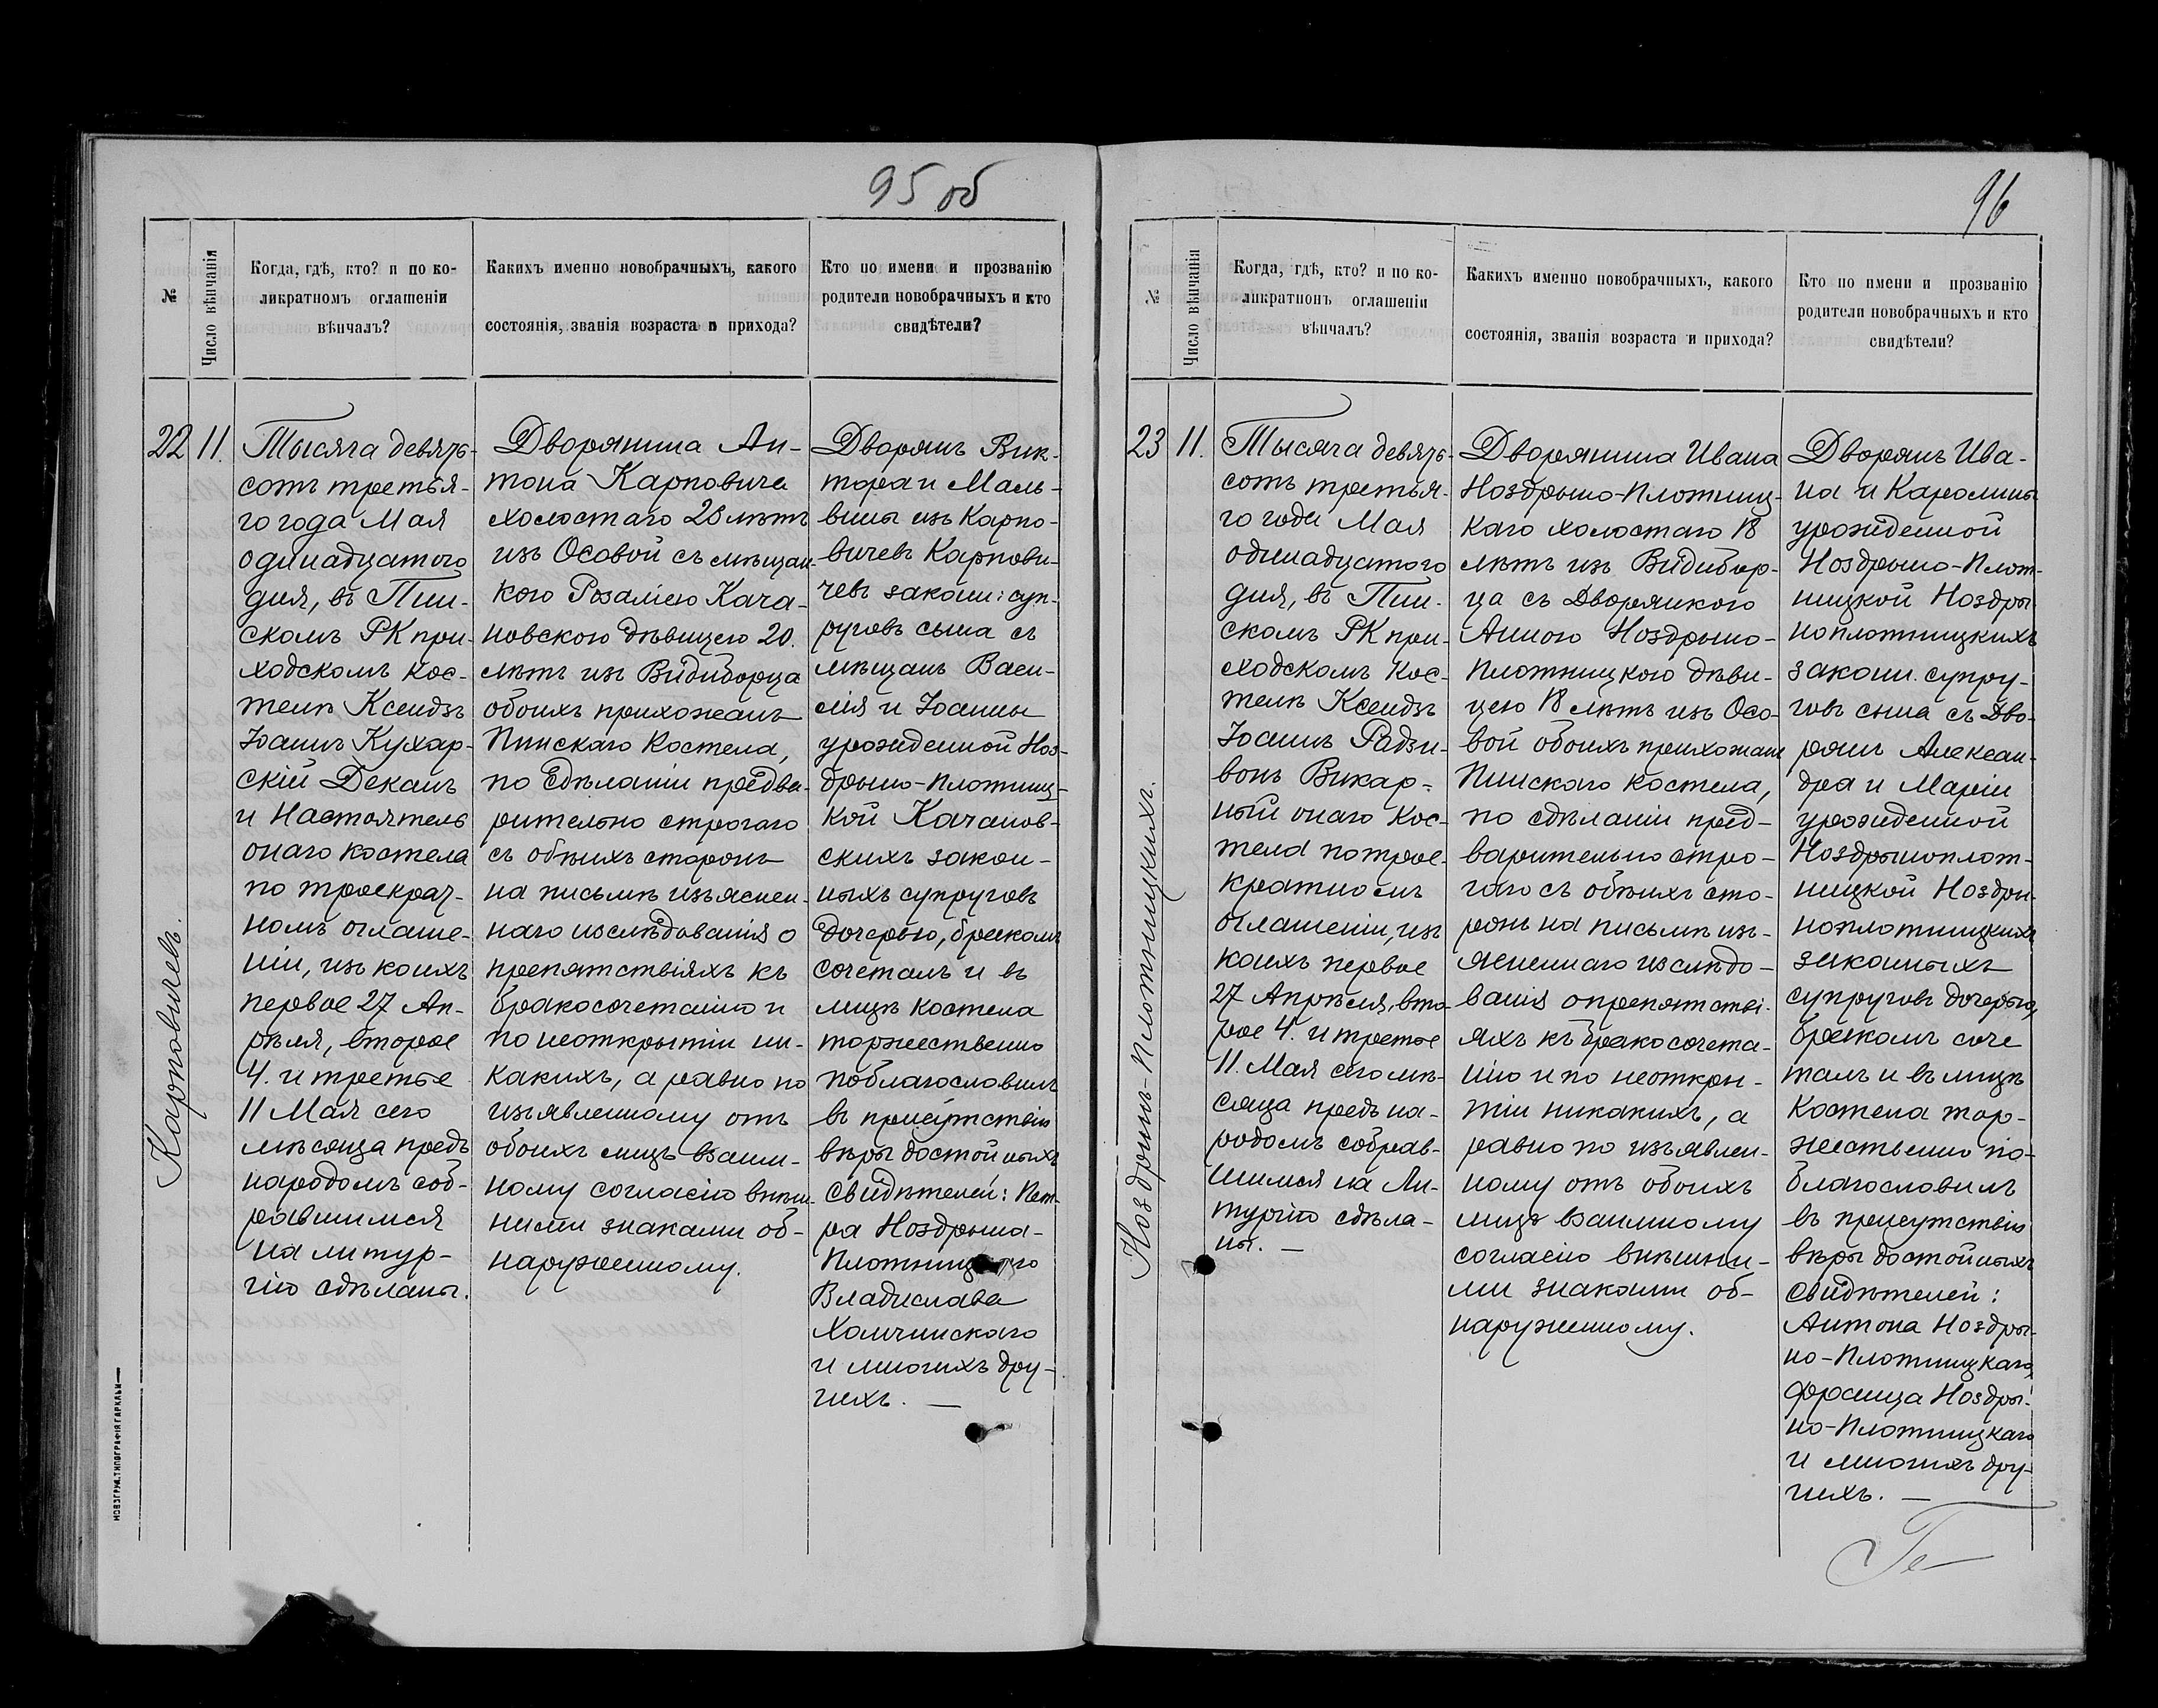 95 об
№
Число вѣнчанія
Когда, гдѣ, кто? и по ко-
ликратномъ оглашеніи
вѣнчалъ?
Какихъ именно новобрачныхъ, какого
состоянія, званія возраста и прихода?
Кто по имени и прозванію
родители новобрачныхъ и кто
свидѣтели?
Карповичевъ.
22
11.
Тысяча девять-
сотъ третья-
го года Мая
одинадцатого
дня, въ Пин-
скомъ РК при-
ходскомъ кос-
телѣ Ксендзъ
Іоаннъ Кухар-
скій Деканъ
и Настоятель
онаго костела
по троекрат-
номъ оглаше-
ніи, изъ коихъ
первое 27 Ап-
рѣля, второе
4. и третье
11 Мая сего
мѣсяца предъ
народомъ соб-
равшимся
на литур-
гію сдѣланы.
Дворянина Ан-
тона Карповича
холостаго 28 лѣтъ
изъ Осовой съ мѣщан-
кою Розаліею Кача-
новскою дѣвицею 20.
лѣтъ изъ Видиборца
обоихъ прихожанъ
Пинскаго Костела,
по сдѣланіи предва-
рительно строгаго
съ обѣихъ сторонъ
на письмѣ изъяснен-
наго изслѣдованія о
препятствіяхъ къ
бракосочетанію и
по неоткрытіи ни-
какихъ, а равно по
изъявленному отъ
обоихъ лицъ взаим-
ному согласію внѣш-
ними знаками об-
наруженному.
Дворянъ Вик-
тора и Маль-
вины изъ Карпо-
вичевъ Карпови-
чевъ законн: суп-
руговъ сына съ
мѣщанъ Васи-
лія и Іоанны
урожденной Ноз-
дрыно-Плотниц-
кой Качанов-
скихъ закон-
ныхъ супруговъ
дочерью, бракомъ
сочеталъ и въ
лицѣ костела
торжественно
поблагословилъ
въ присутствіи
вѣры достойныхъ
свидѣтелей: Пет-
ра Ноздрына-
Плотницкаго
Владислава
Холчинскаго
и многихъ дру-
гихъ. —
НОВЗГРАД. ТИПОГРАФІЯ ГАРКАЛЬИ
96
№
Число вѣнчанія
Когда, гдѣ, кто? и по ко-
ликратномъ оглашеніи
вѣнчалъ?
Какихъ именно новобрачныхъ, какого
состоянія, званія возраста и прихода?
Кто по имени и прозванію
родители новобрачныхъ и кто
свидѣтели?
Ноздринъ-Плотницкихъ.
23
11.
Тысяча девять-
сотъ третья-
го года Мая
одинадцатого
дня, въ Пин-
скомъ РК при-
ходскомъ Кос-
телѣ Ксендзъ
Іоаннъ Радзи-
вонъ Викар-
ный онаго Кос-
тела по трое-
кратномъ
оглашеніи, изъ
коихъ первое
27 Апрѣля, вто-
рое 4. и третье
11. Мая сего мѣ-
сяца предъ на-
родомъ собрав-
шимся на Ли-
тургію сдѣла-
ны. —
Дворянина Ивана
Ноздрыно-Плотниц-
каго холостаго 18
лѣтъ изъ Видибор-
ца съ Дворянкою
Анною Ноздрыно-
Плотницкою дѣви-
цею 18 лѣтъ изъ Осо-
вой обоихъ прихожанъ
Пинскаго костела,
по сдѣланіи пред-
варительно стро-
гаго съ обѣихъ сто-
ронъ на письмѣ изъ-
ясненнаго изслѣдо-
ванія о препятстві-
яхъ къ бракосочета-
нію и по неоткры-
тіи никакихъ, а
равно по изъявлен-
ному отъ обоихъ
лицъ взаимному
согласію внѣшни-
ми знаками об-
наруженному.
Дворянъ Ива-
на и Каролины
урожденной
Ноздрыно-Плот-
ницкой Ноздры-
ноплотницкихъ
законн. супру-
говъ сына съ Дво-
рянъ Алексан-
дра и Маріи
урожденной
Ноздрыноплот-
ницкой Ноздры-
ноплотницкихъ
законныхъ
супруговъ дочерью,
бракомъ соче
талъ и въ лицѣ
Костела тор-
жественно по-
благословилъ
въ присутствіи
вѣры достойныхъ
свидѣтелей:
Антона Ноздры-
но-Плотницкаго,
Франца Ноздры-
но-Плотницкаго
и многихъ дру-
гихъ. —